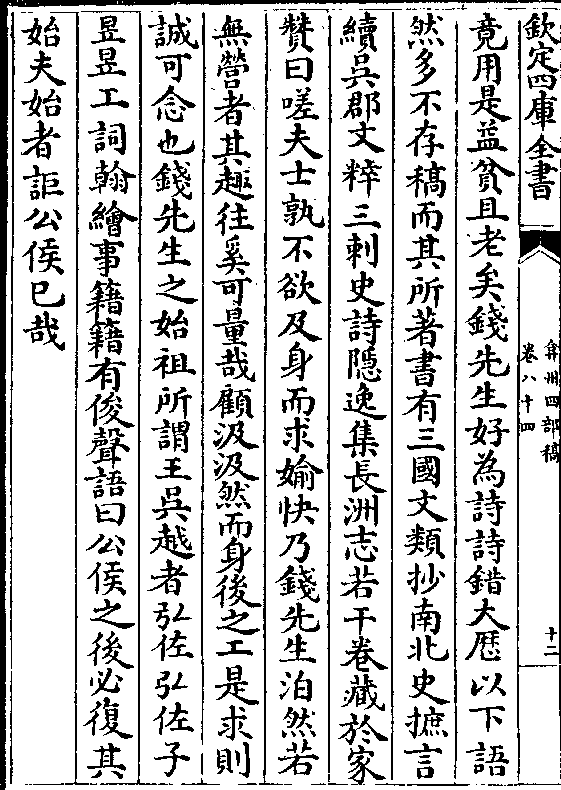 欽定四庫全書
弇州四部稿
卷八十四
十二
竟用是益貧且老矣錢先生好為詩詩錯大厯以下語
然多不存稿而其所著書有三國文類抄南北史摭言
續吳郡文粹三刺史詩隱逸集長洲志若干卷藏於家
贊曰嗟夫士孰不欲及身而求媮快乃錢先生泊然若
無營者其趣往奚可量哉顧汲汲然而身後之工是求則
誠可念也錢先生之始祖所謂王吳越者弘佐弘佐子
昱昱工詞翰繪事籍籍有俊聲語曰公侯之後必復其
始夫始者詎公侯已哉